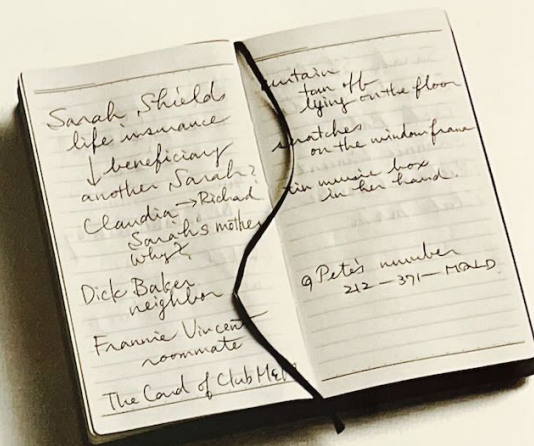 Sarah Shields
life insurance
↓ beneficiary
another Sarah?
Claudia → Richard
Sarah's mother
why?
Dick Baker
neighbor
Frannie Vincent
roommate
The Card of Club
torn off
lying on the floor
scratches
on the window frame
tin music box
in her hand.
Pete's number
212-391-